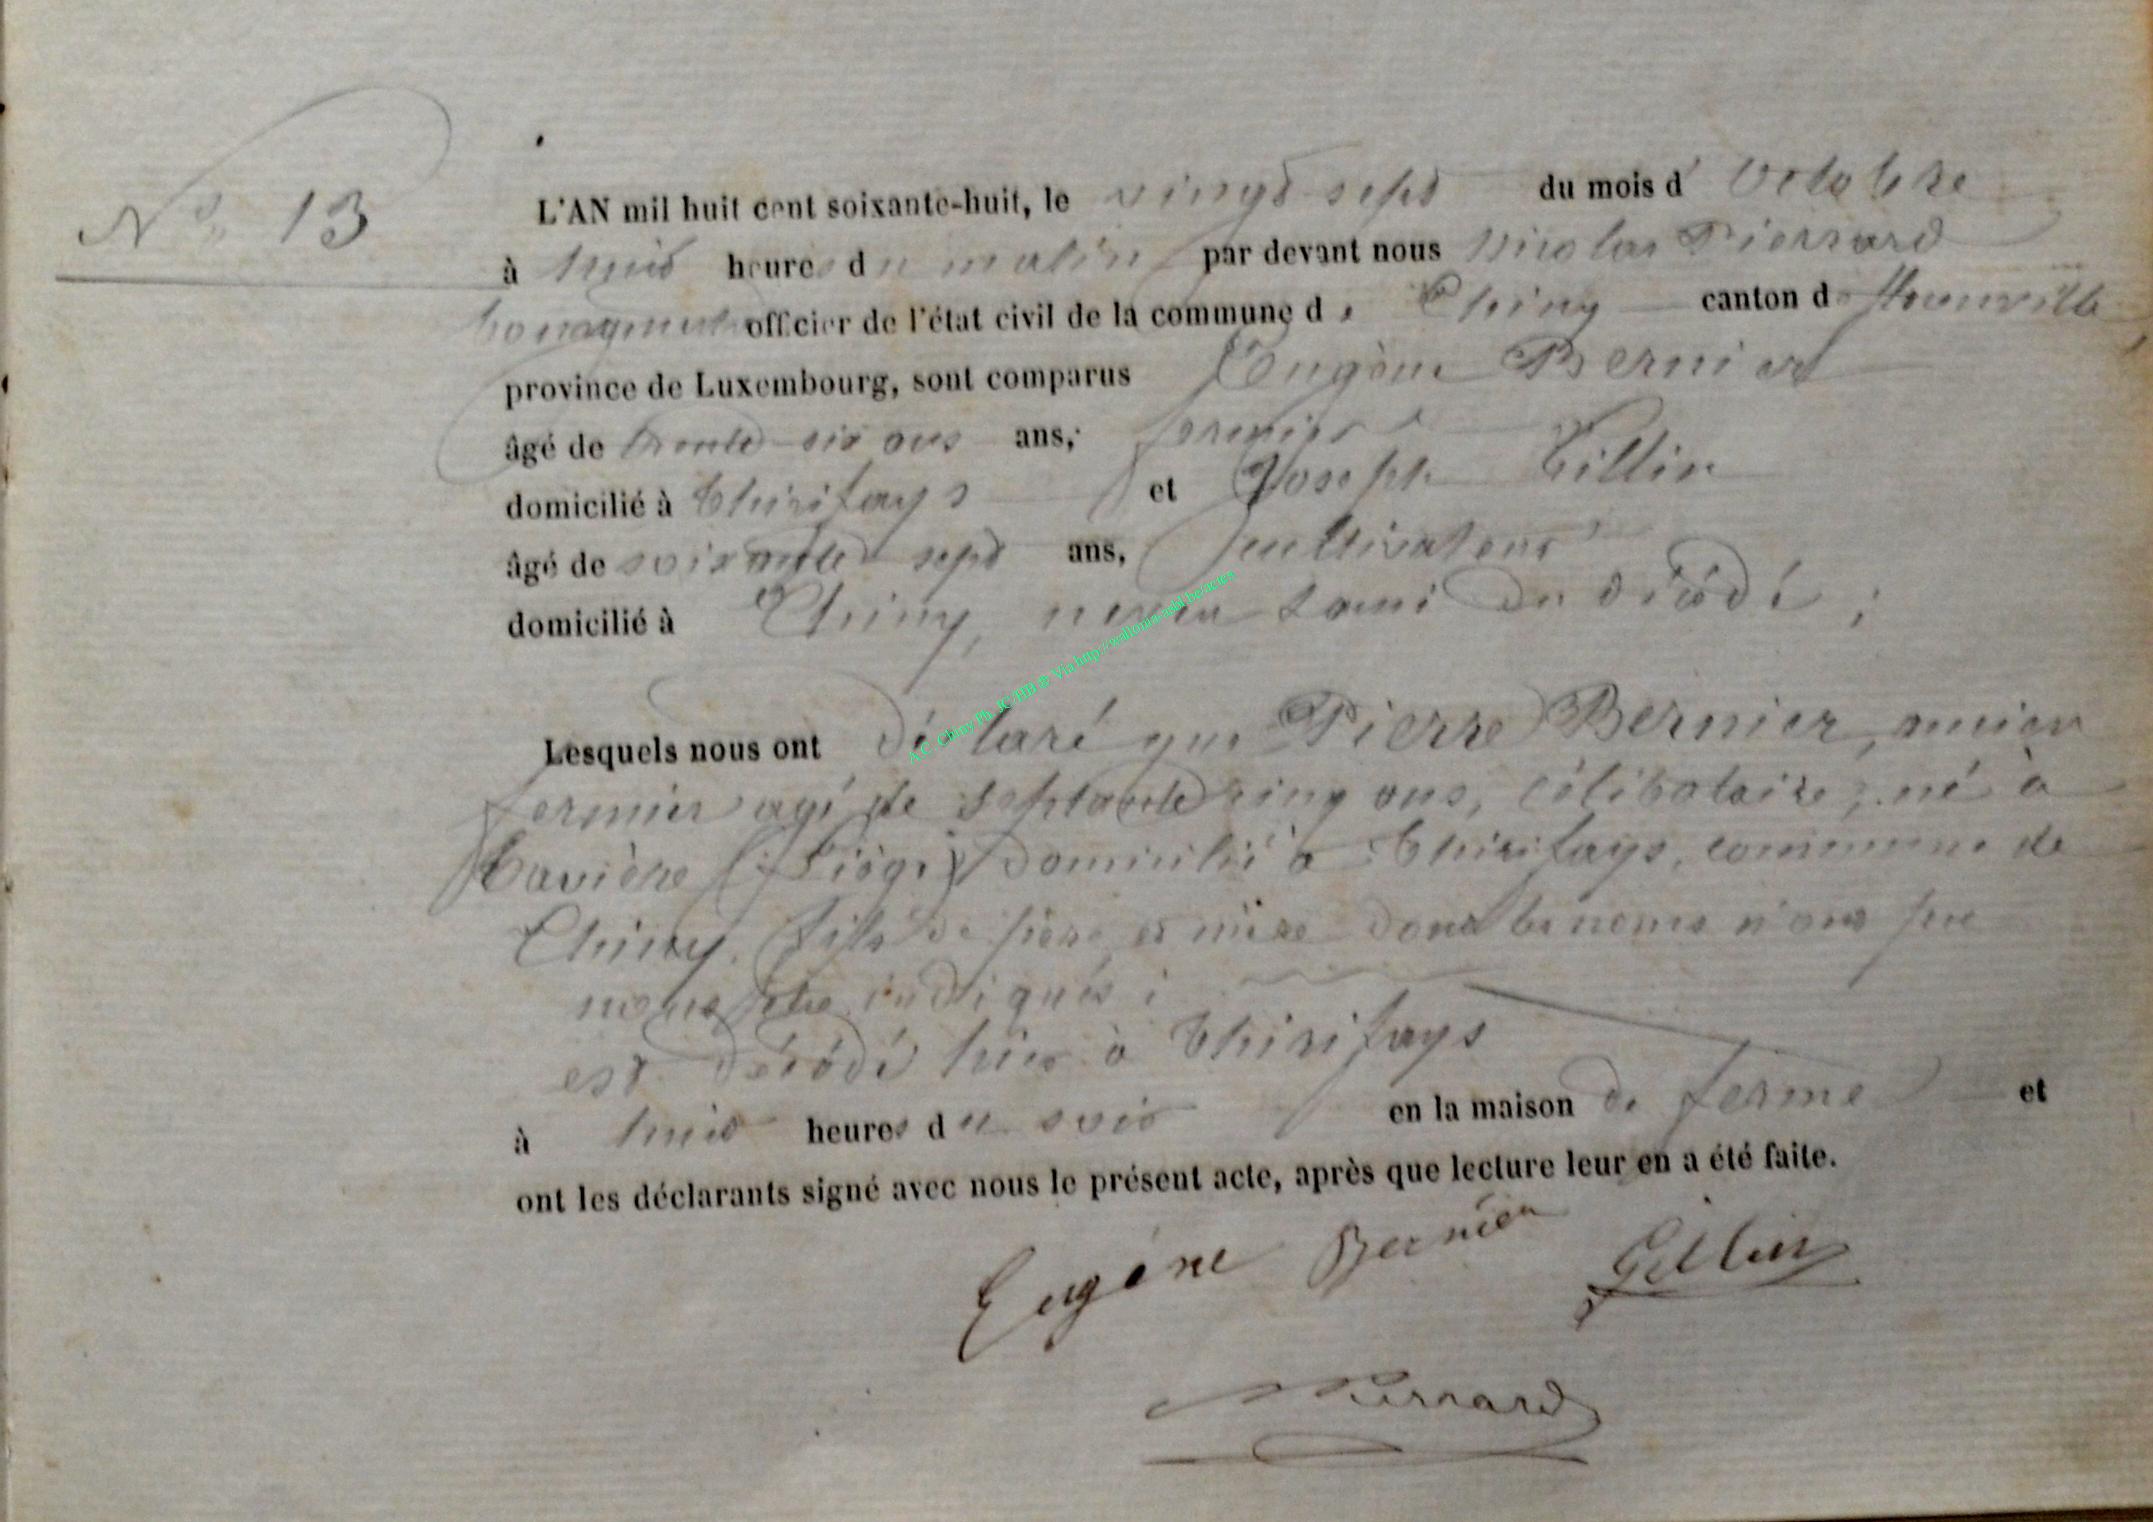 N° 13
L'AN mil huit cent soixante-huit, le vingt sept du mois d'Octobre
à huit heures du matin par devant nous Nicolas Pierrard
bourgmestre officier de l'état civil de la commune de Chiny canton de
province de Luxembourg, sont comparus Eugène Bernier
âgé de trente six ans ans, fermier
domicilié à Thirifays et Joseph Gillin
âgé de soixante sept ans, cultivateur
domicilié à Chiny, du décédé ;
Lesquels nous ont déclaré que Pierre Bernier, ancien
fermier agé de septante cinq ans, célibataire, né à
(Liège) domicilié à Thirifays, commune de
Chiny, fils de père et mère dont les noms n'ont pu
nous être indiqués ;
est décédé hier à Thirifays
à huit heures du soir en la maison de ferme et
ont les déclarants signé avec nous le présent acte, après que lecture leur en a été faite.
Eugène Bernier Gillin
NPierrard
A.C. Chiny Ph. JC/HB @ Via http://wallonia-asbl.be/actes